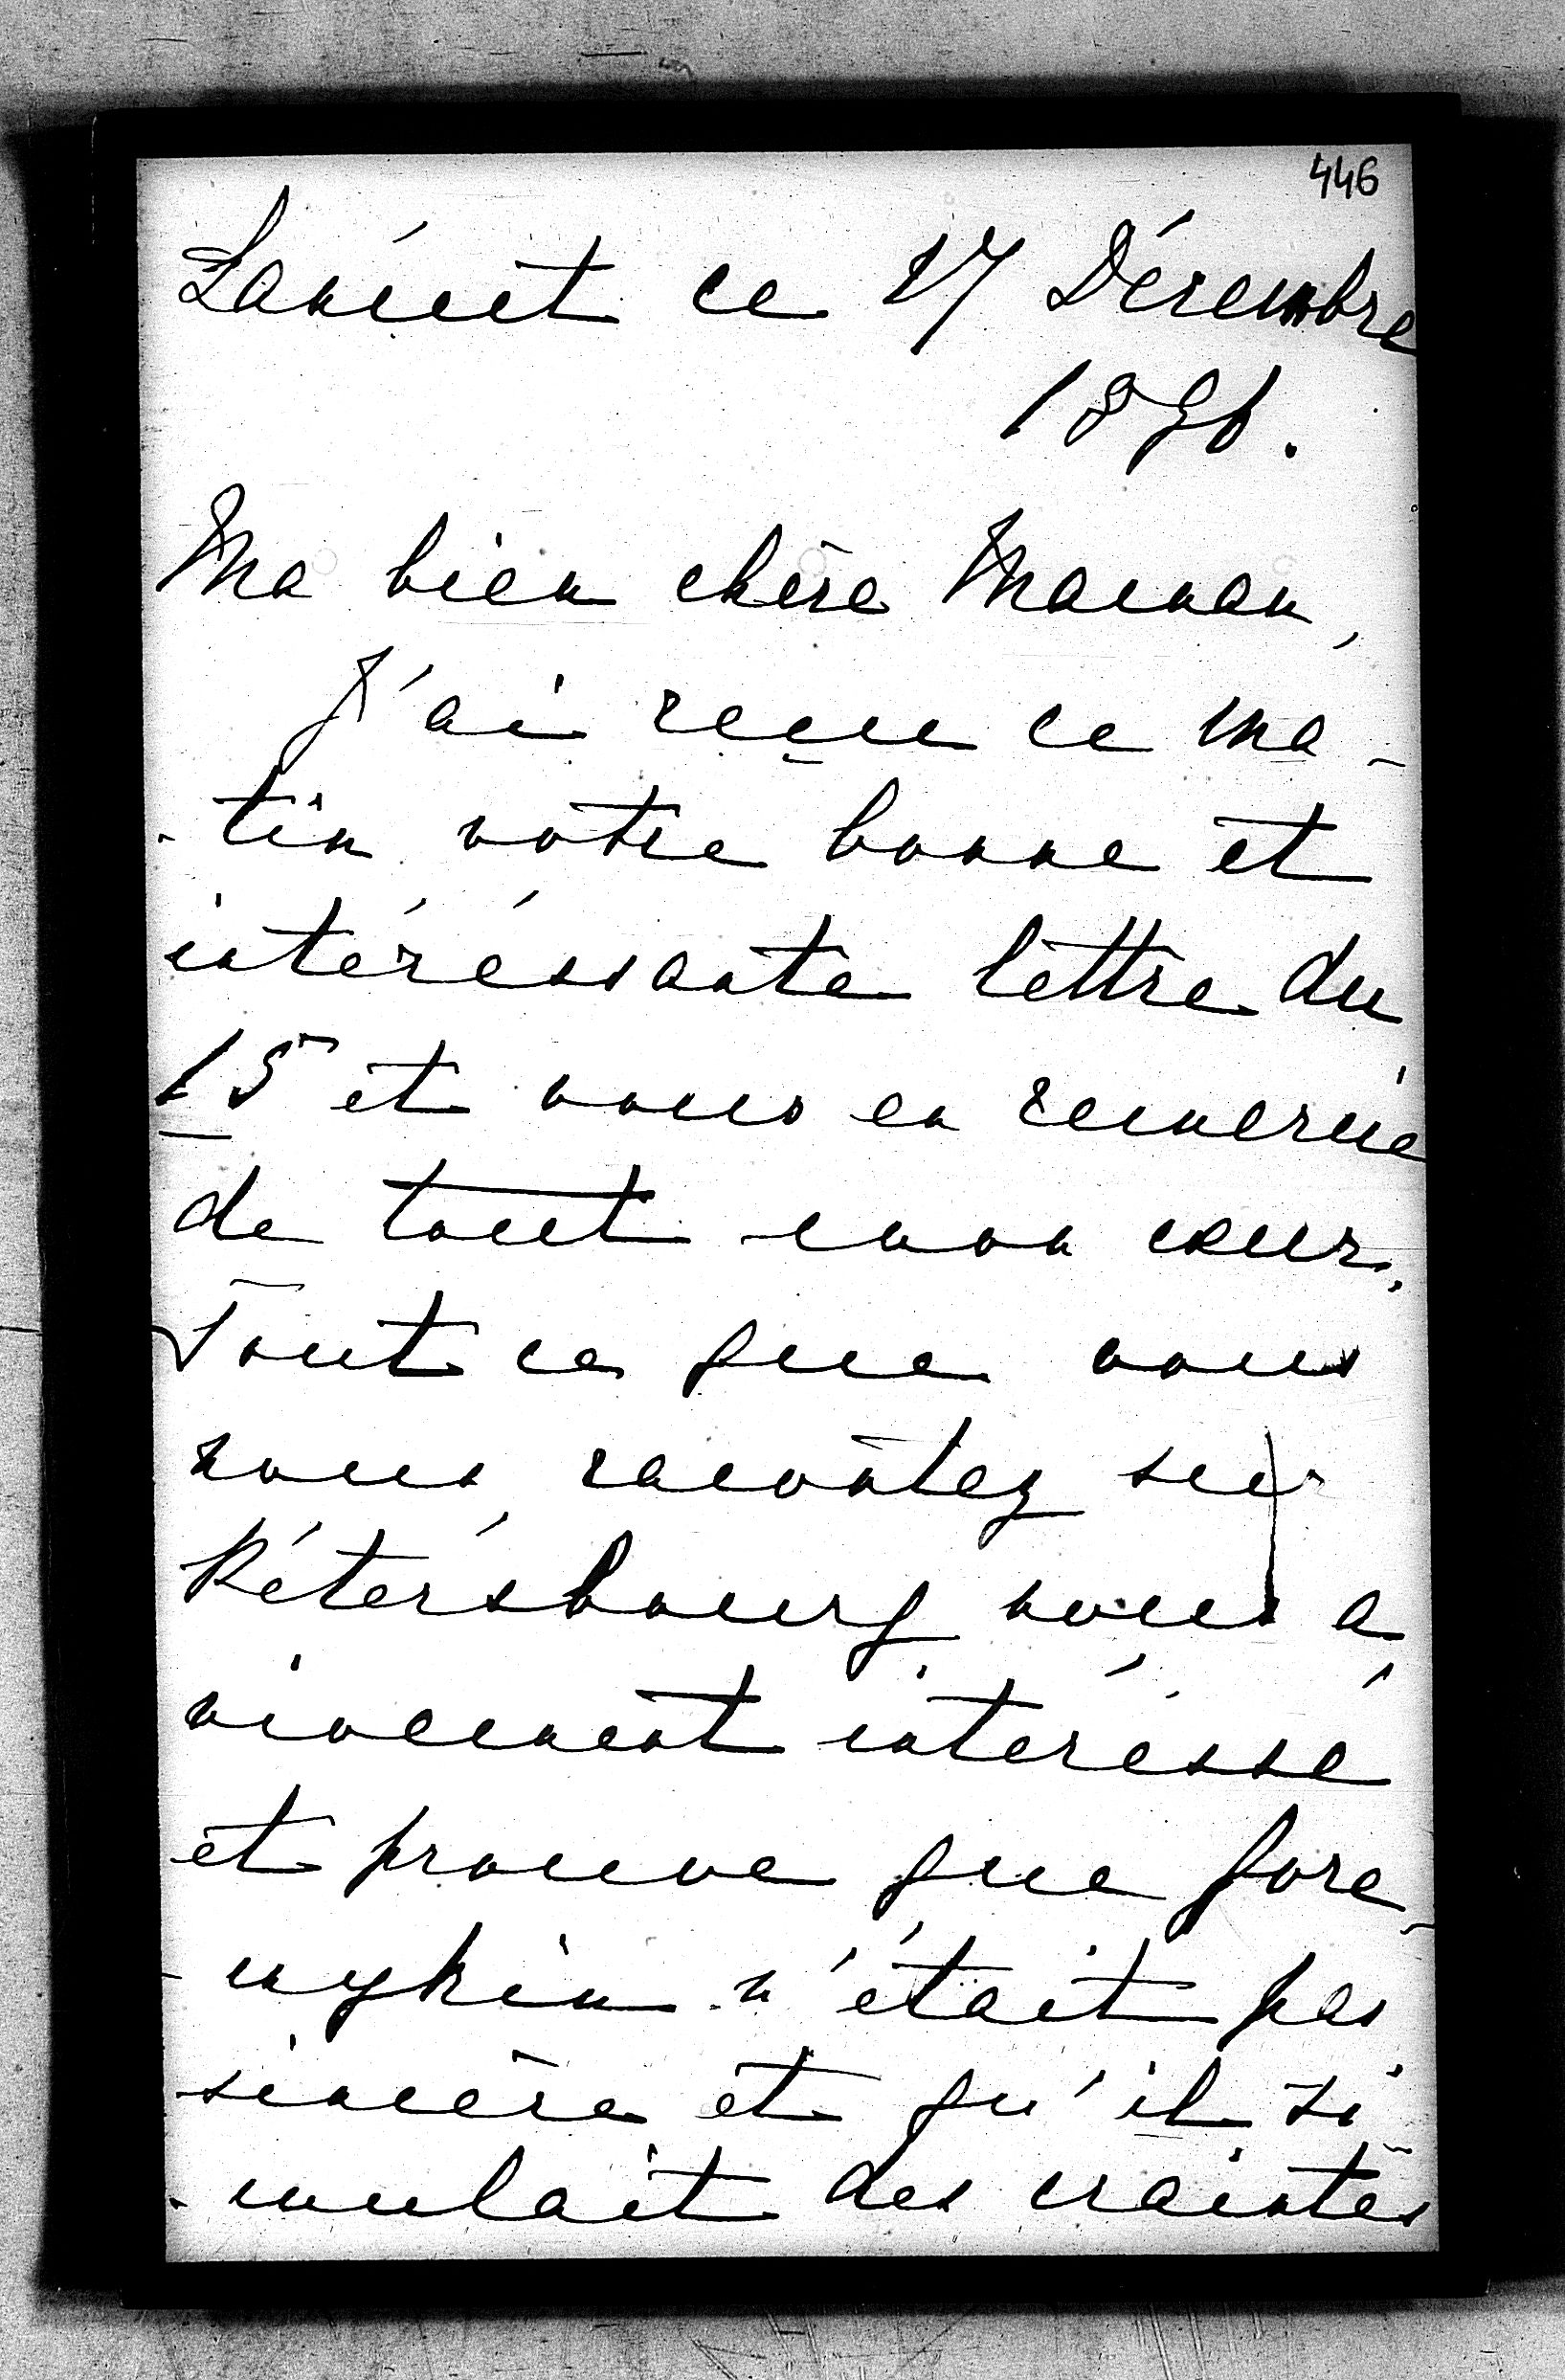 446
Łancut ce 17 Décembre
1896.
Ma bien chère Maman,
J'ai reçue ce ma-
-tin votre bonne et
intéréssante lettre du
15 et vous en remercie
de tout mon cœur.
Tout ce que vous
nous racontez sur
Pétersbourg nous a
vivement intéréssé
et prouve que Gore-
-mykin n'était pas
sincère et qu'il si-
-mulait des craintes